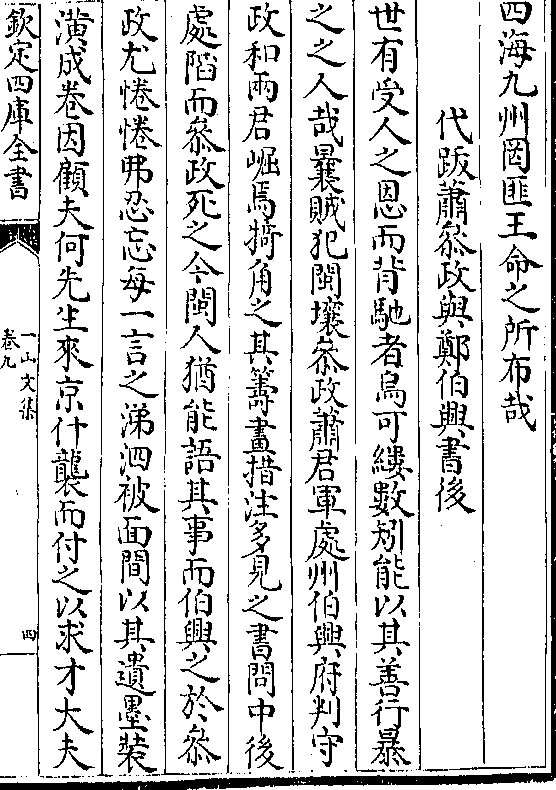 四海九州罔匪王命之所布哉
代跋蕭叅政與鄭伯興書後
世有受人之恩而背馳者烏可縷數矧能以其善行暴
之之人哉曩賊犯閩壤叅政蕭君軍處州伯興府判守
政和兩君崛焉犄角之其籌畫措注多見之書問中後
處陷而叅政死之今閩人猶能語其事而伯興之於叅
政尤惓惓弗忍忘每一言之涕泗被面間以其遺墨裝
潢成卷因顧夫何先生來京什襲而付之以求才大夫
欽定四庫全書
一山文集
卷九
四